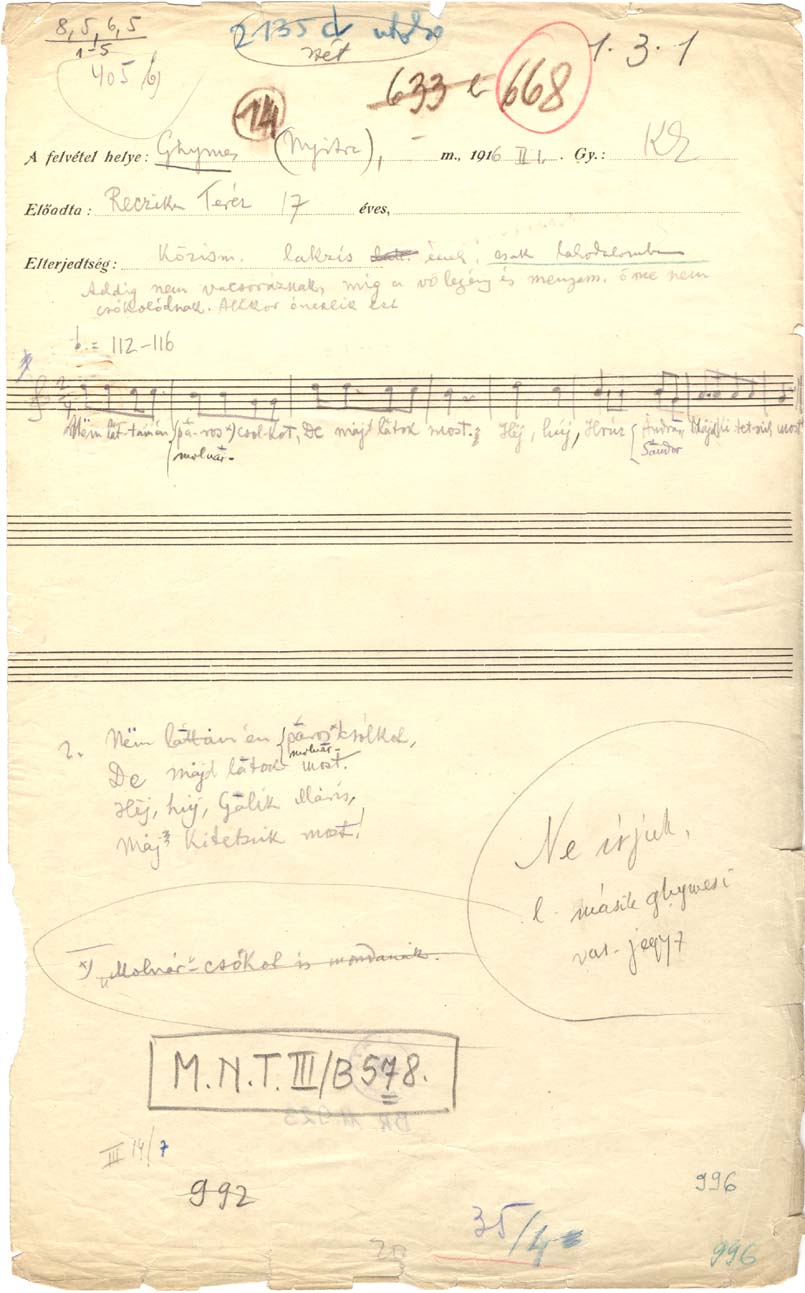 8, 5, 6, 5
1-5
405 b)
2135 d utolsó
14
633 668
1. 3. 1
A felvétel helye: Ghymes (Nyitra), – m., 1916 II 1. Gy.: KZ
Előadta: Reczika Teréz 17 éves,
Elterjedtség: Közism. lakzis ének, csak lakodalomban
Addig nem vacsoráznak, míg a vőlegény és menyasszony nem
csókolódnak. Akkor éneklik ezt
= 112–116
Nëm lát-tam én páros x) csól-kot, De májd látok most. Héj, héj, Hrúz András Májd ki-tet-szik most
molnár- Sándor
2. Nëm láttám én páros x) csólkot,
molnár-
De májd látok most.
Héj, héj, Gálik Máris,
Májd Kitetszik most!
Ne írjuk,
l. másik ghymesi
var. jegyz
x) "Molnár"-csókol is mondanák.
M.N.T. III/B 578.
BR 11923
III 14/7
992
996
35/4
996